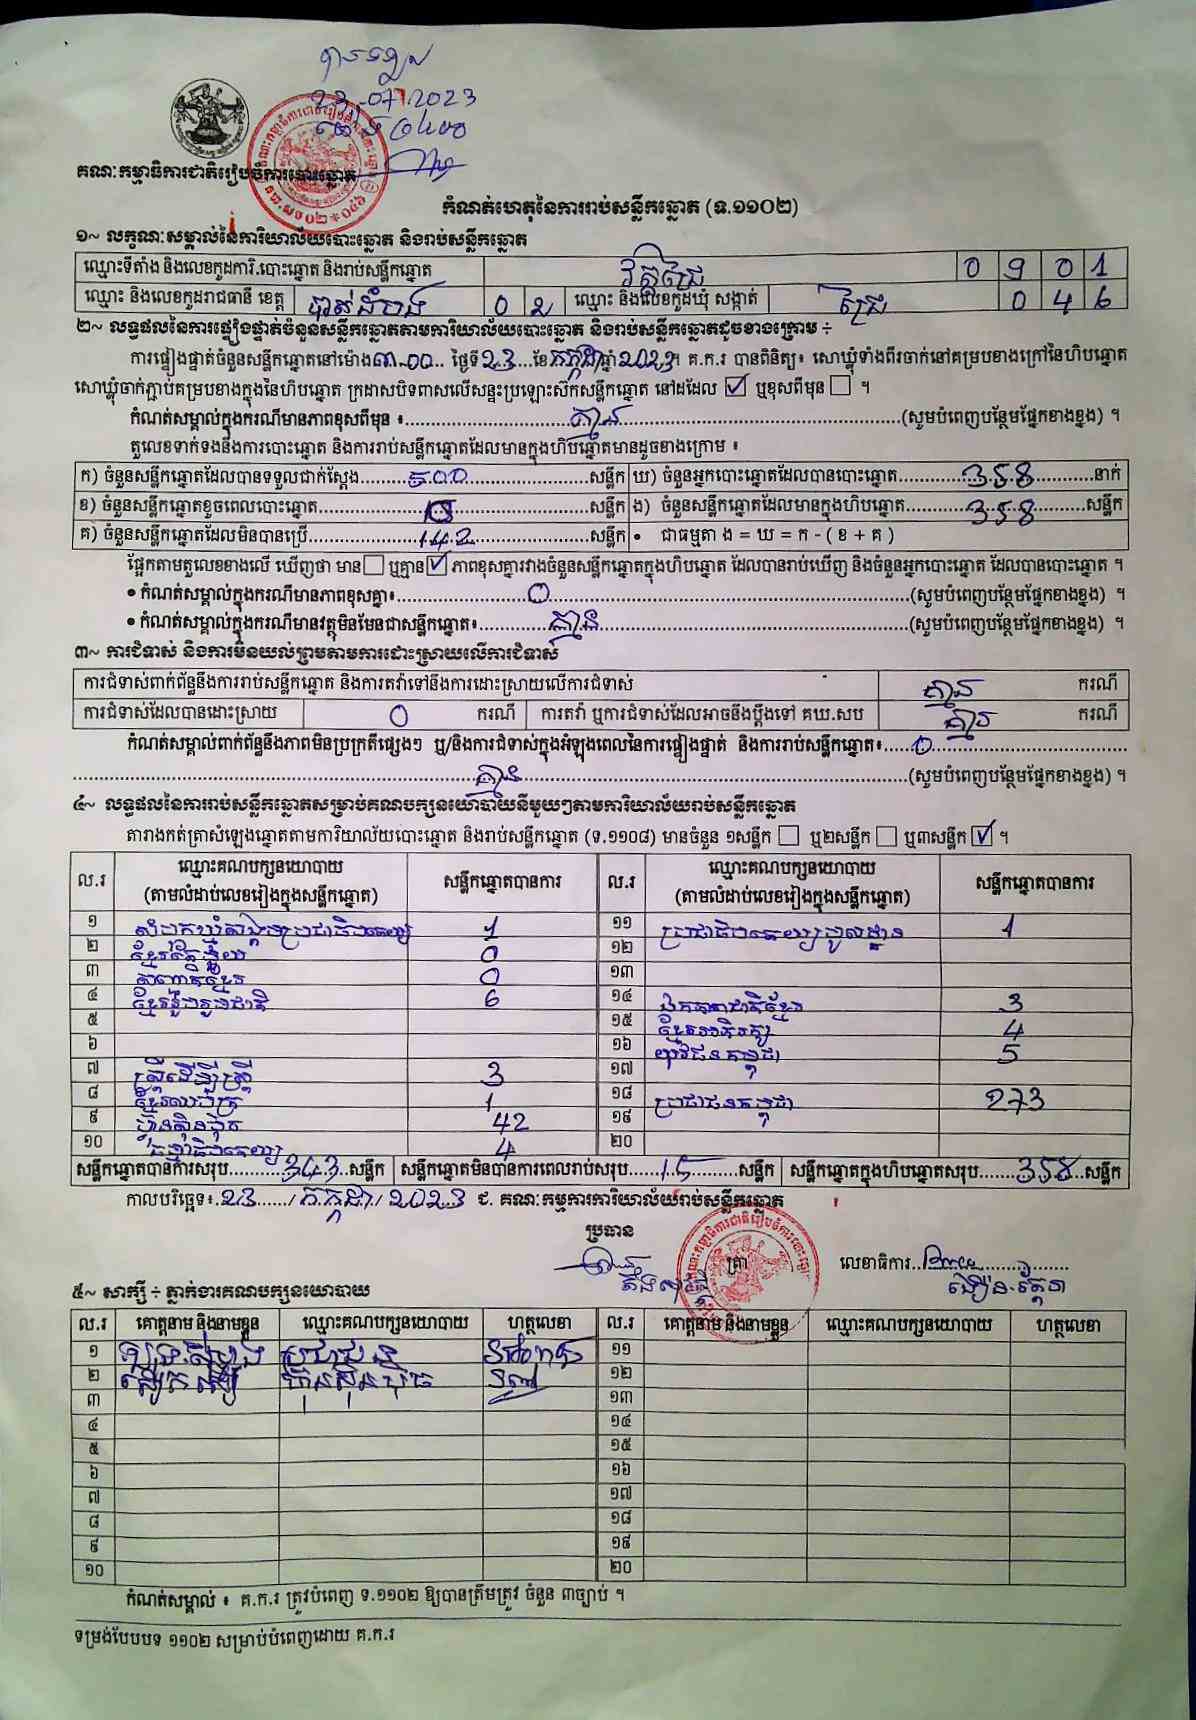 23-07-2023
គណៈកម្មាធិការជាតិរៀបចំការបោះឆ្នោត
កំណត់ហេតុនៃការរាប់សន្លឹកឆ្នោត (ទ.១១០២)
១~ លក្ខណៈសម្គាល់នៃការិយាល័យបោះឆ្នោត និងរាប់សន្លឹកឆ្នោត
ឈ្មោះទីតាំង និងលេខកូដការិ.បោះឆ្នោត និងរាប់សន្លឹកឆ្នោត វត្តជ្រៃ 0 9 0 1
ឈ្មោះ និងលេខកូដរាជធានី ខេត្ត បាត់ដំបង 0 2 ឈ្មោះ និងលេខកូដឃុំ សង្កាត់ ជ្រៃ 0 4 6
២~ លទ្ធផលនៃការផ្ទៀងផ្ទាត់ចំនួនសន្លឹកឆ្នោតតាមការិយាល័យបោះឆ្នោត និងរាប់សន្លឹកឆ្នោតដូចខាងក្រោម ÷
ការផ្ទៀងផ្ទាត់ចំនួនសន្លឹកឆ្នោតនៅម៉ោង ៣:00 ថ្ងៃទី 23 ខែ កក្កដា ឆ្នាំ 2023 ។ គ.ក.រ បានពិនិត្យ៖ សោឃ្លុំទាំងពីរចាក់នៅគម្របខាងក្រៅនៃហិបឆ្នោត
សោឃ្លុំចាក់ភ្ជាប់គម្របខាងក្នុងនៃហិបឆ្នោត ក្រដាសបិទពាសលើសន្ទះប្រឡោះស៊កសន្លឹកឆ្នោត នៅដដែល ☑ ឬខុសពីមុន ☐ ។
កំណត់សម្គាល់ក្នុងករណីមានភាពខុសពីមុន ៖ គ្មាន (សូមបំពេញបន្ថែមផ្នែកខាងខ្នង) ។
តួលេខទាក់ទងនឹងការបោះឆ្នោត និងការរាប់សន្លឹកឆ្នោតដែលមានក្នុងហិបឆ្នោតមានដូចខាងក្រោម ៖
ក) ចំនួនសន្លឹកឆ្នោតដែលបានទទួលជាក់ស្តែង 500 សន្លឹក ឃ) ចំនួនអ្នកបោះឆ្នោតដែលបានបោះឆ្នោត 358 នាក់
ខ) ចំនួនសន្លឹកឆ្នោតខូចពេលបោះឆ្នោត សន្លឹក ង) ចំនួនសន្លឹកឆ្នោតដែលមានក្នុងហិបឆ្នោត 358 សន្លឹក
គ) ចំនួនសន្លឹកឆ្នោតដែលមិនបានប្រើ 142 សន្លឹក • ជាធម្មតា ង = ឃ = ក - ( ខ + គ )
ផ្អែកតាមតួលេខខាងលើ ឃើញថា មាន ☐ ឬគ្មាន ☑ ភាពខុសគ្នារវាងចំនួនសន្លឹកឆ្នោតក្នុងហិបឆ្នោត ដែលបានរាប់ឃើញ និងចំនួនអ្នកបោះឆ្នោត ដែលបានបោះឆ្នោត ។
• កំណត់សម្គាល់ក្នុងករណីមានភាពខុសគ្នា៖ 0 (សូមបំពេញបន្ថែមផ្នែកខាងខ្នង) ។
• កំណត់សម្គាល់ក្នុងករណីមានវត្ថុមិនមែនជាសន្លឹកឆ្នោត៖ គ្មាន (សូមបំពេញបន្ថែមផ្នែកខាងខ្នង) ។
៣~ ការជំទាស់ និងការមិនយល់ព្រមតាមការដោះស្រាយលើការជំទាស់
ការជំទាស់ពាក់ព័ន្ធនឹងការរាប់សន្លឹកឆ្នោត និងការតវ៉ាទៅនឹងការដោះស្រាយលើការជំទាស់ គ្មាន ករណី
ការជំទាស់ដែលបានដោះស្រាយ 0 ករណី ការតវ៉ា ឬការជំទាស់ដែលអាចនឹងប្តឹងទៅ គឃ.សប គ្មាន ករណី
កំណត់សម្គាល់ពាក់ព័ន្ធនឹងភាពមិនប្រក្រតីផ្សេងៗ ឬ/និងការជំទាស់ក្នុងអំឡុងពេលនៃការផ្ទៀងផ្ទាត់ និងការរាប់សន្លឹកឆ្នោត៖ 0
គ្មាន (សូមបំពេញបន្ថែមផ្នែកខាងខ្នង) ។
៤~ លទ្ធផលនៃការរាប់សន្លឹកឆ្នោតសម្រាប់គណបក្សនយោបាយនីមួយៗតាមការិយាល័យរាប់សន្លឹកឆ្នោត
តារាងកត់ត្រាសំឡេងឆ្នោតតាមការិយាល័យបោះឆ្នោត និងរាប់សន្លឹកឆ្នោត (ទ.១១០៨) មានចំនួន ១សន្លឹក ☐ ឬ២សន្លឹក ☐ ឬ៣សន្លឹក ☑ ។
ល.រ ឈ្មោះគណបក្សនយោបាយ (តាមលំដាប់លេខរៀងក្នុងសន្លឹកឆ្នោត) សន្លឹកឆ្នោតបានការ ល.រ ឈ្មោះគណបក្សនយោបាយ (តាមលំដាប់លេខរៀងក្នុងសន្លឹកឆ្នោត) សន្លឹកឆ្នោតបានការ
១ សំបុកឃ្មុំសង្គមប្រជាធិបតេយ្យ 1 ១១ ប្រជាធិបតេយ្យមូលដ្ឋាន 1
២ ខ្មែរតែមួយ 0 ១២
៣ សញ្ជាតិខ្មែរ 0 ១៣
៤ ខ្មែររួបរួមជាតិ 6 ១៤ ឯកភាពជាតិខ្មែរ 3
៥ ១៥ ខ្មែរអភិរក្ស 4
៦ ១៦ យុវជនកម្ពុជា 5
៧ ស្រ្តីដើម្បីស្រ្តី 3 ១៧
៨ ខ្មែរឈប់ក្រ 1 ១៨ ប្រជាជនកម្ពុជា 273
៩ ហ្វ៊ុនស៊ិនប៉ិច 42 ១៩
១០ ធម្មាធិបតេយ្យ 4 ២០
សន្លឹកឆ្នោតបានការសរុប 343 សន្លឹក សន្លឹកឆ្នោតមិនបានការពេលរាប់សរុប 15 សន្លឹក សន្លឹកឆ្នោតក្នុងហិបឆ្នោតសរុប 358 សន្លឹក
កាលបរិច្ឆេទ៖ 23 / កក្កដា / 2023 ជ. គណៈកម្មការការិយាល័យរាប់សន្លឹកឆ្នោត
ប្រធាន
ត្រា លេខាធិការ
៥~ សាក្សី ÷ ភ្នាក់ងារគណបក្សនយោបាយ
ល.រ គោត្តនាម និងនាមខ្លួន ឈ្មោះគណបក្សនយោបាយ ហត្ថលេខា ល.រ គោត្តនាម និងនាមខ្លួន ឈ្មោះគណបក្សនយោបាយ ហត្ថលេខា
១ ប្រជាជន ១១
២ ហ៊្វុនស៊ិនប៉ិច ១២
៣ ១៣
៤ ១៤
៥ ១៥
៦ ១៦
៧ ១៧
៨ ១៨
៩ ១៩
១០ ២០
កំណត់សម្គាល់ ៖ គ.ក.រ ត្រូវបំពេញ ទ.១១០២ ឱ្យបានត្រឹមត្រូវ ចំនួន ៣ច្បាប់ ។
ទម្រង់បែបបទ ១១០២ សម្រាប់បំពេញដោយ គ.ក.រ